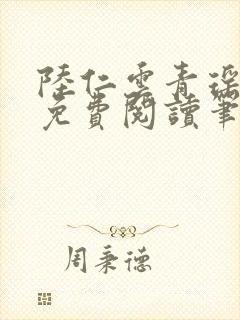 陸仁雲青瑤
免費閱讀筆
周秉德